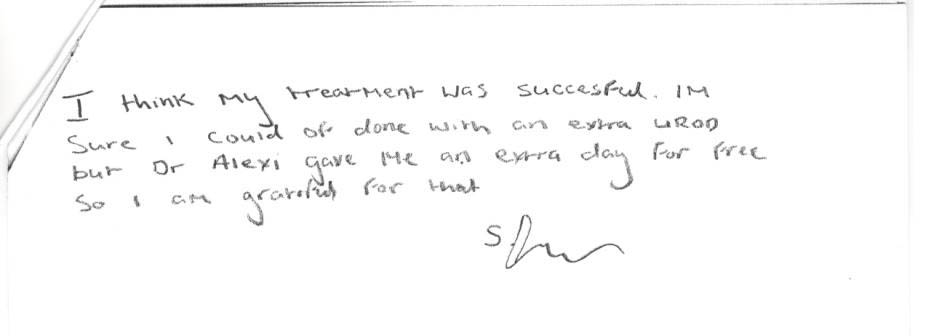 I think my treatment was succesful. IM
Sure I could of done with an extra UROD
but Dr Alexi gave me an extra day for free
So I am grateful for that
S